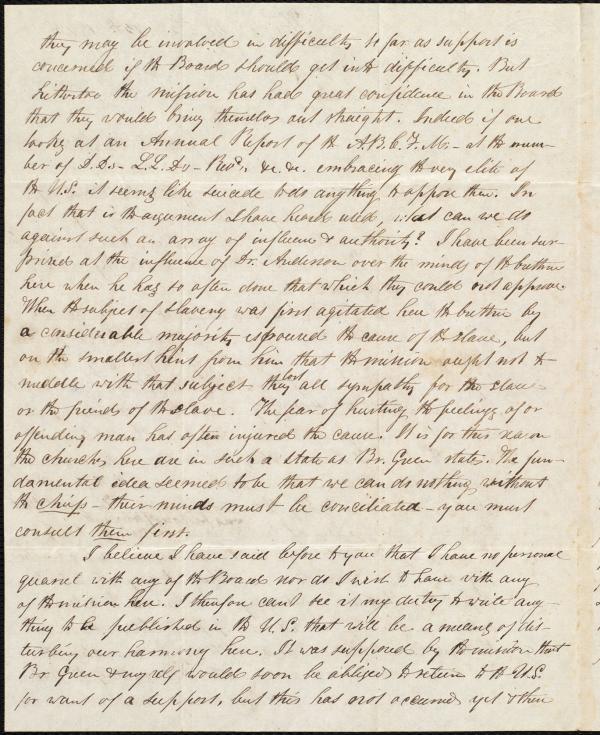 they may be involved in difficulty so far as support is
concerned if the Board should get into difficulty. But
hitherto the mission has had great confidence in the Board
that they would bring themselves out straight. Indeed if one
looks at an Annual Report of the A.B.C.F.M. - at the num-
ber of D.Ds - L.L.Ds - Revds, &c. &c. embracing the very elite of
the U.S. it seems like suicide to do anything to oppose them. In
fact that is the argument I have heard used, what can we do
against such an array of influence & authority? I have been sur-
prised at the influence of Dr. Anderson over the minds of the brethren
here when he has so often done that which they could not approve.
When the subject of slavery was first agitated here the brethren by
a considerable majority espoused the cause of the slave, but
on the smallest hint from him that the mission ought not to
meddle with that subject they lost all sympathy for the slave
or the friends of the slave. The fear of hurting the feelings of or
offending man has often injured the cause. It is for this reason
the churches here are in such a state as Br. Green states. The fun-
damental idea seemed to be that we can do nothing without
the chiefs - their minds must be conciliated - you must
consult them first.
I believe I have said before to you that I have no personal
quarrel with any of the Board nor do I wish to have with any
of the mission here. I therefore cant see it my duty to write any-
thing to be published in the U.S. that will be a means of dis-
turbing our harmony here. It was supposed by the mission that
Br Green & myself would soon be obliged to return to the U.S.
for want of a support, but this has not occurred yet & there